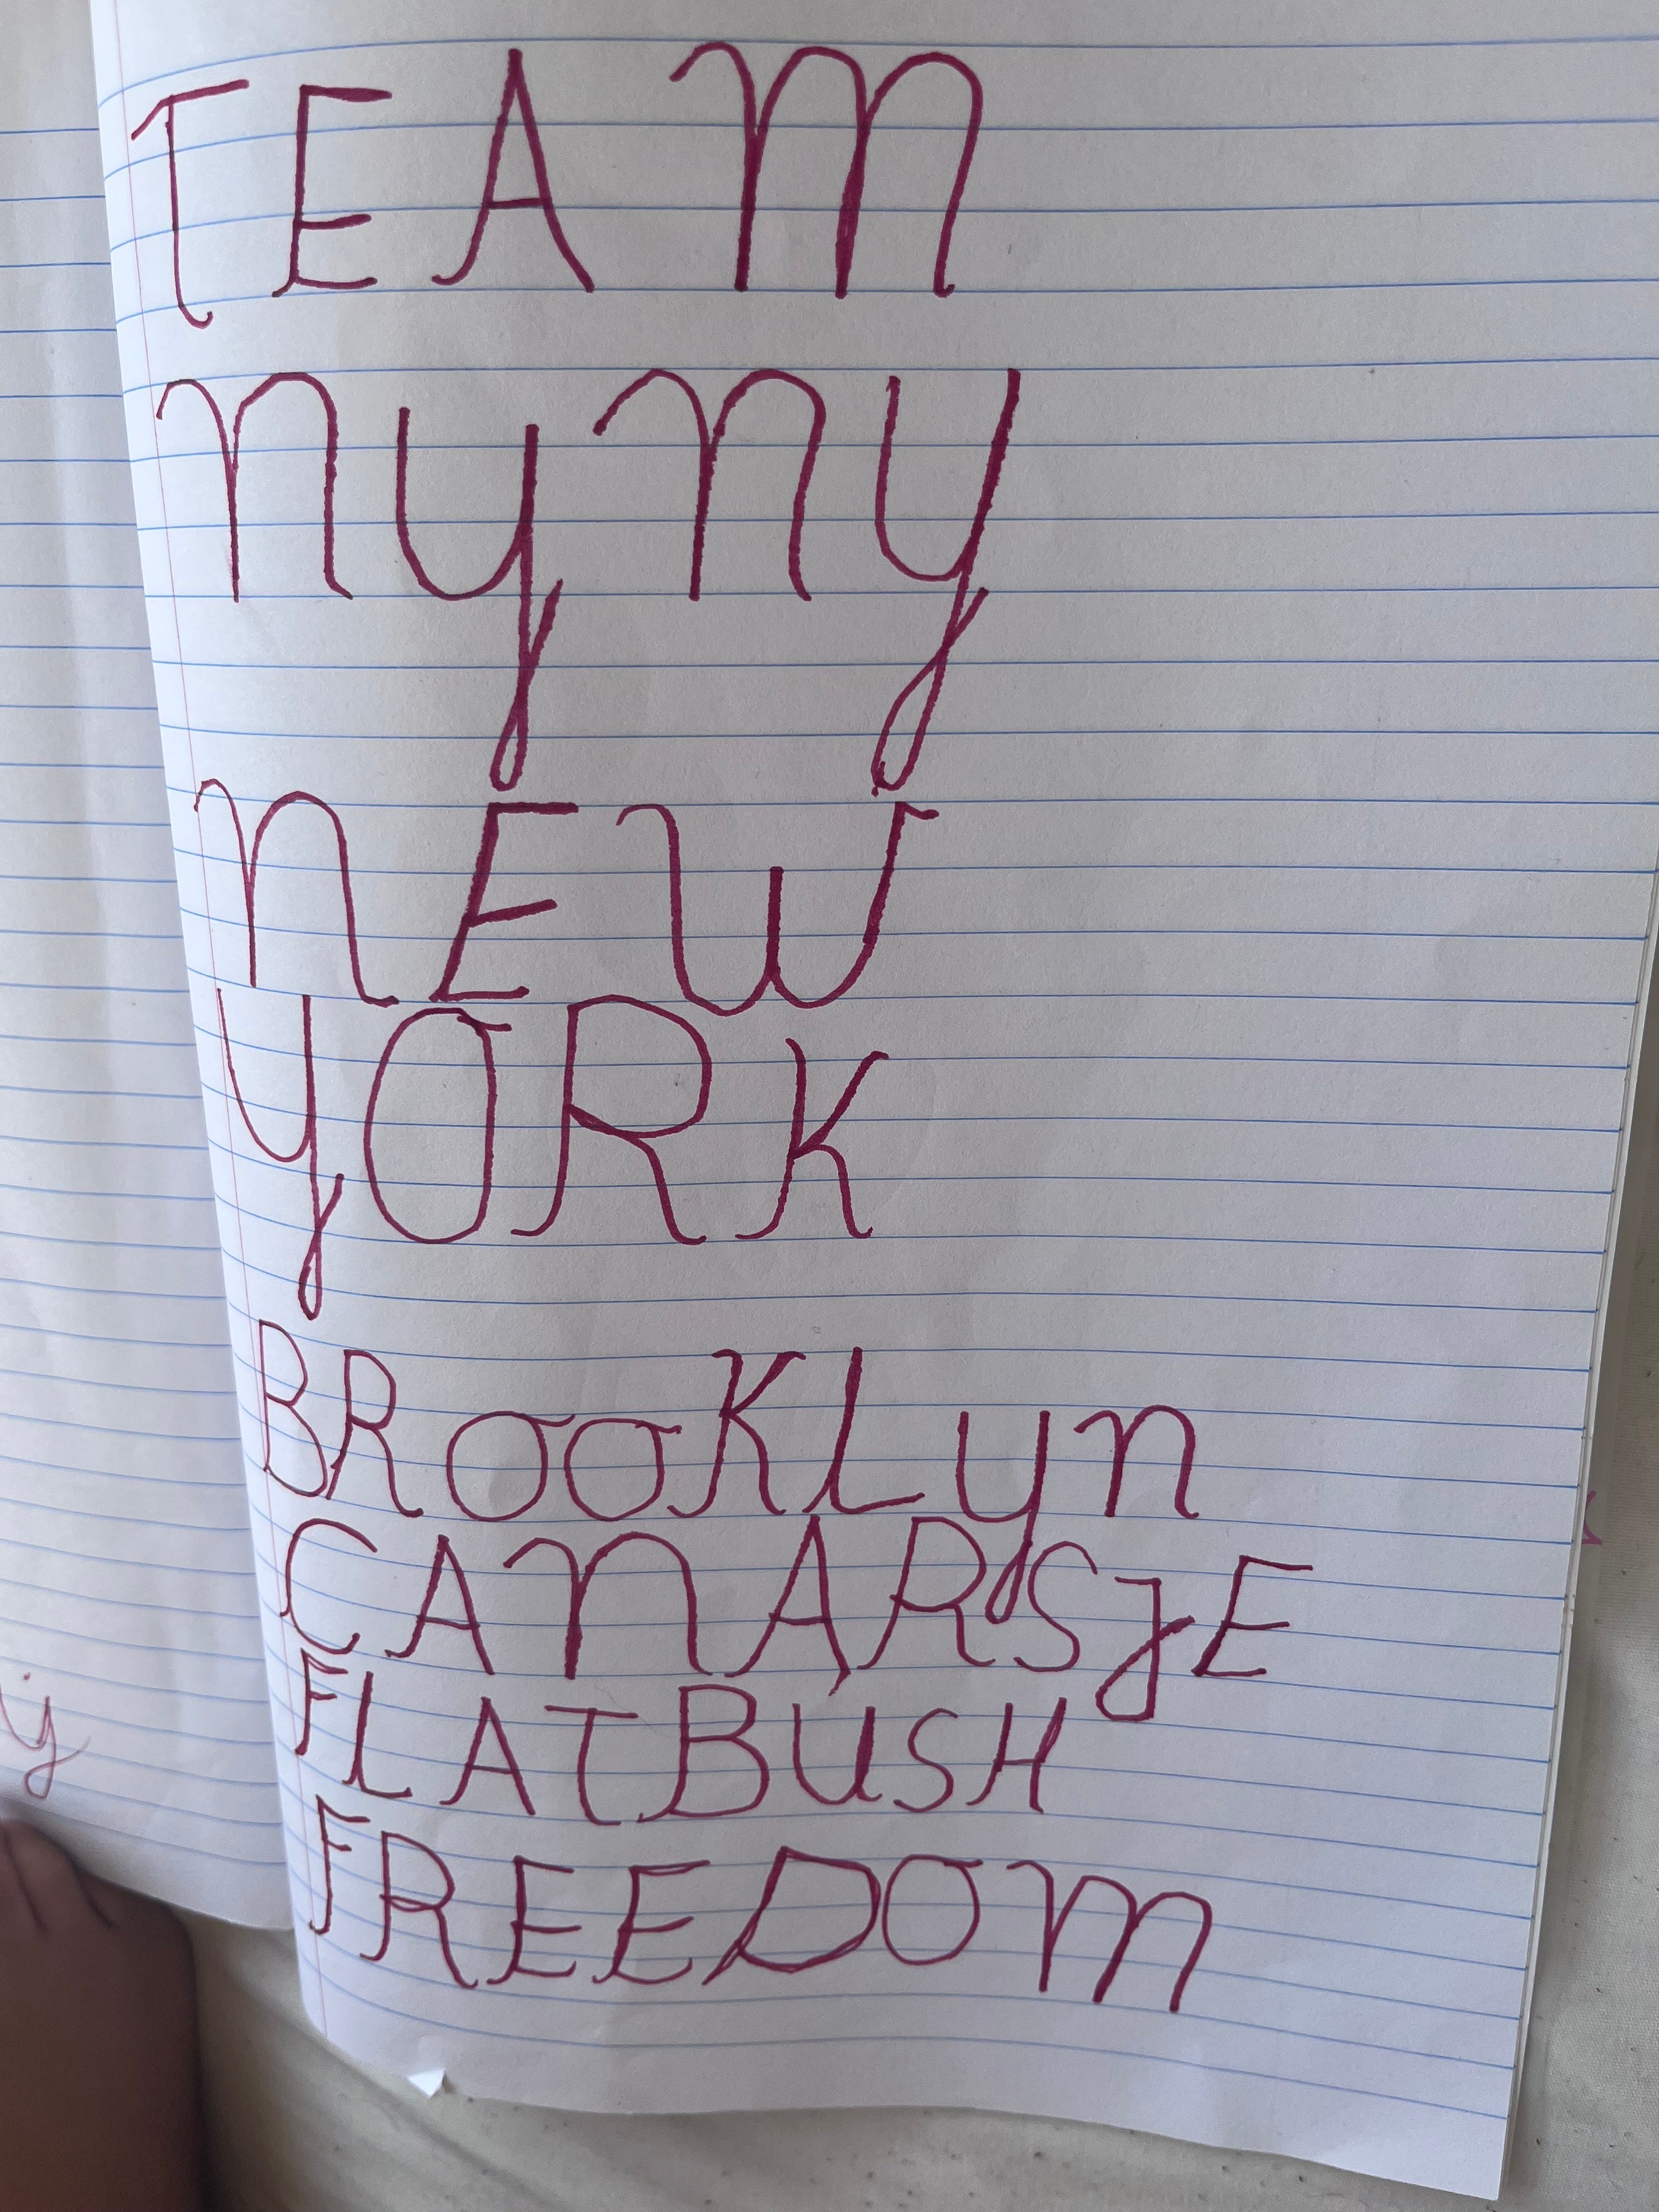 TEAM
nyny
NEW
YORK
BROOKLyn
CANARSJE
FLATBUSH
FREEDOM